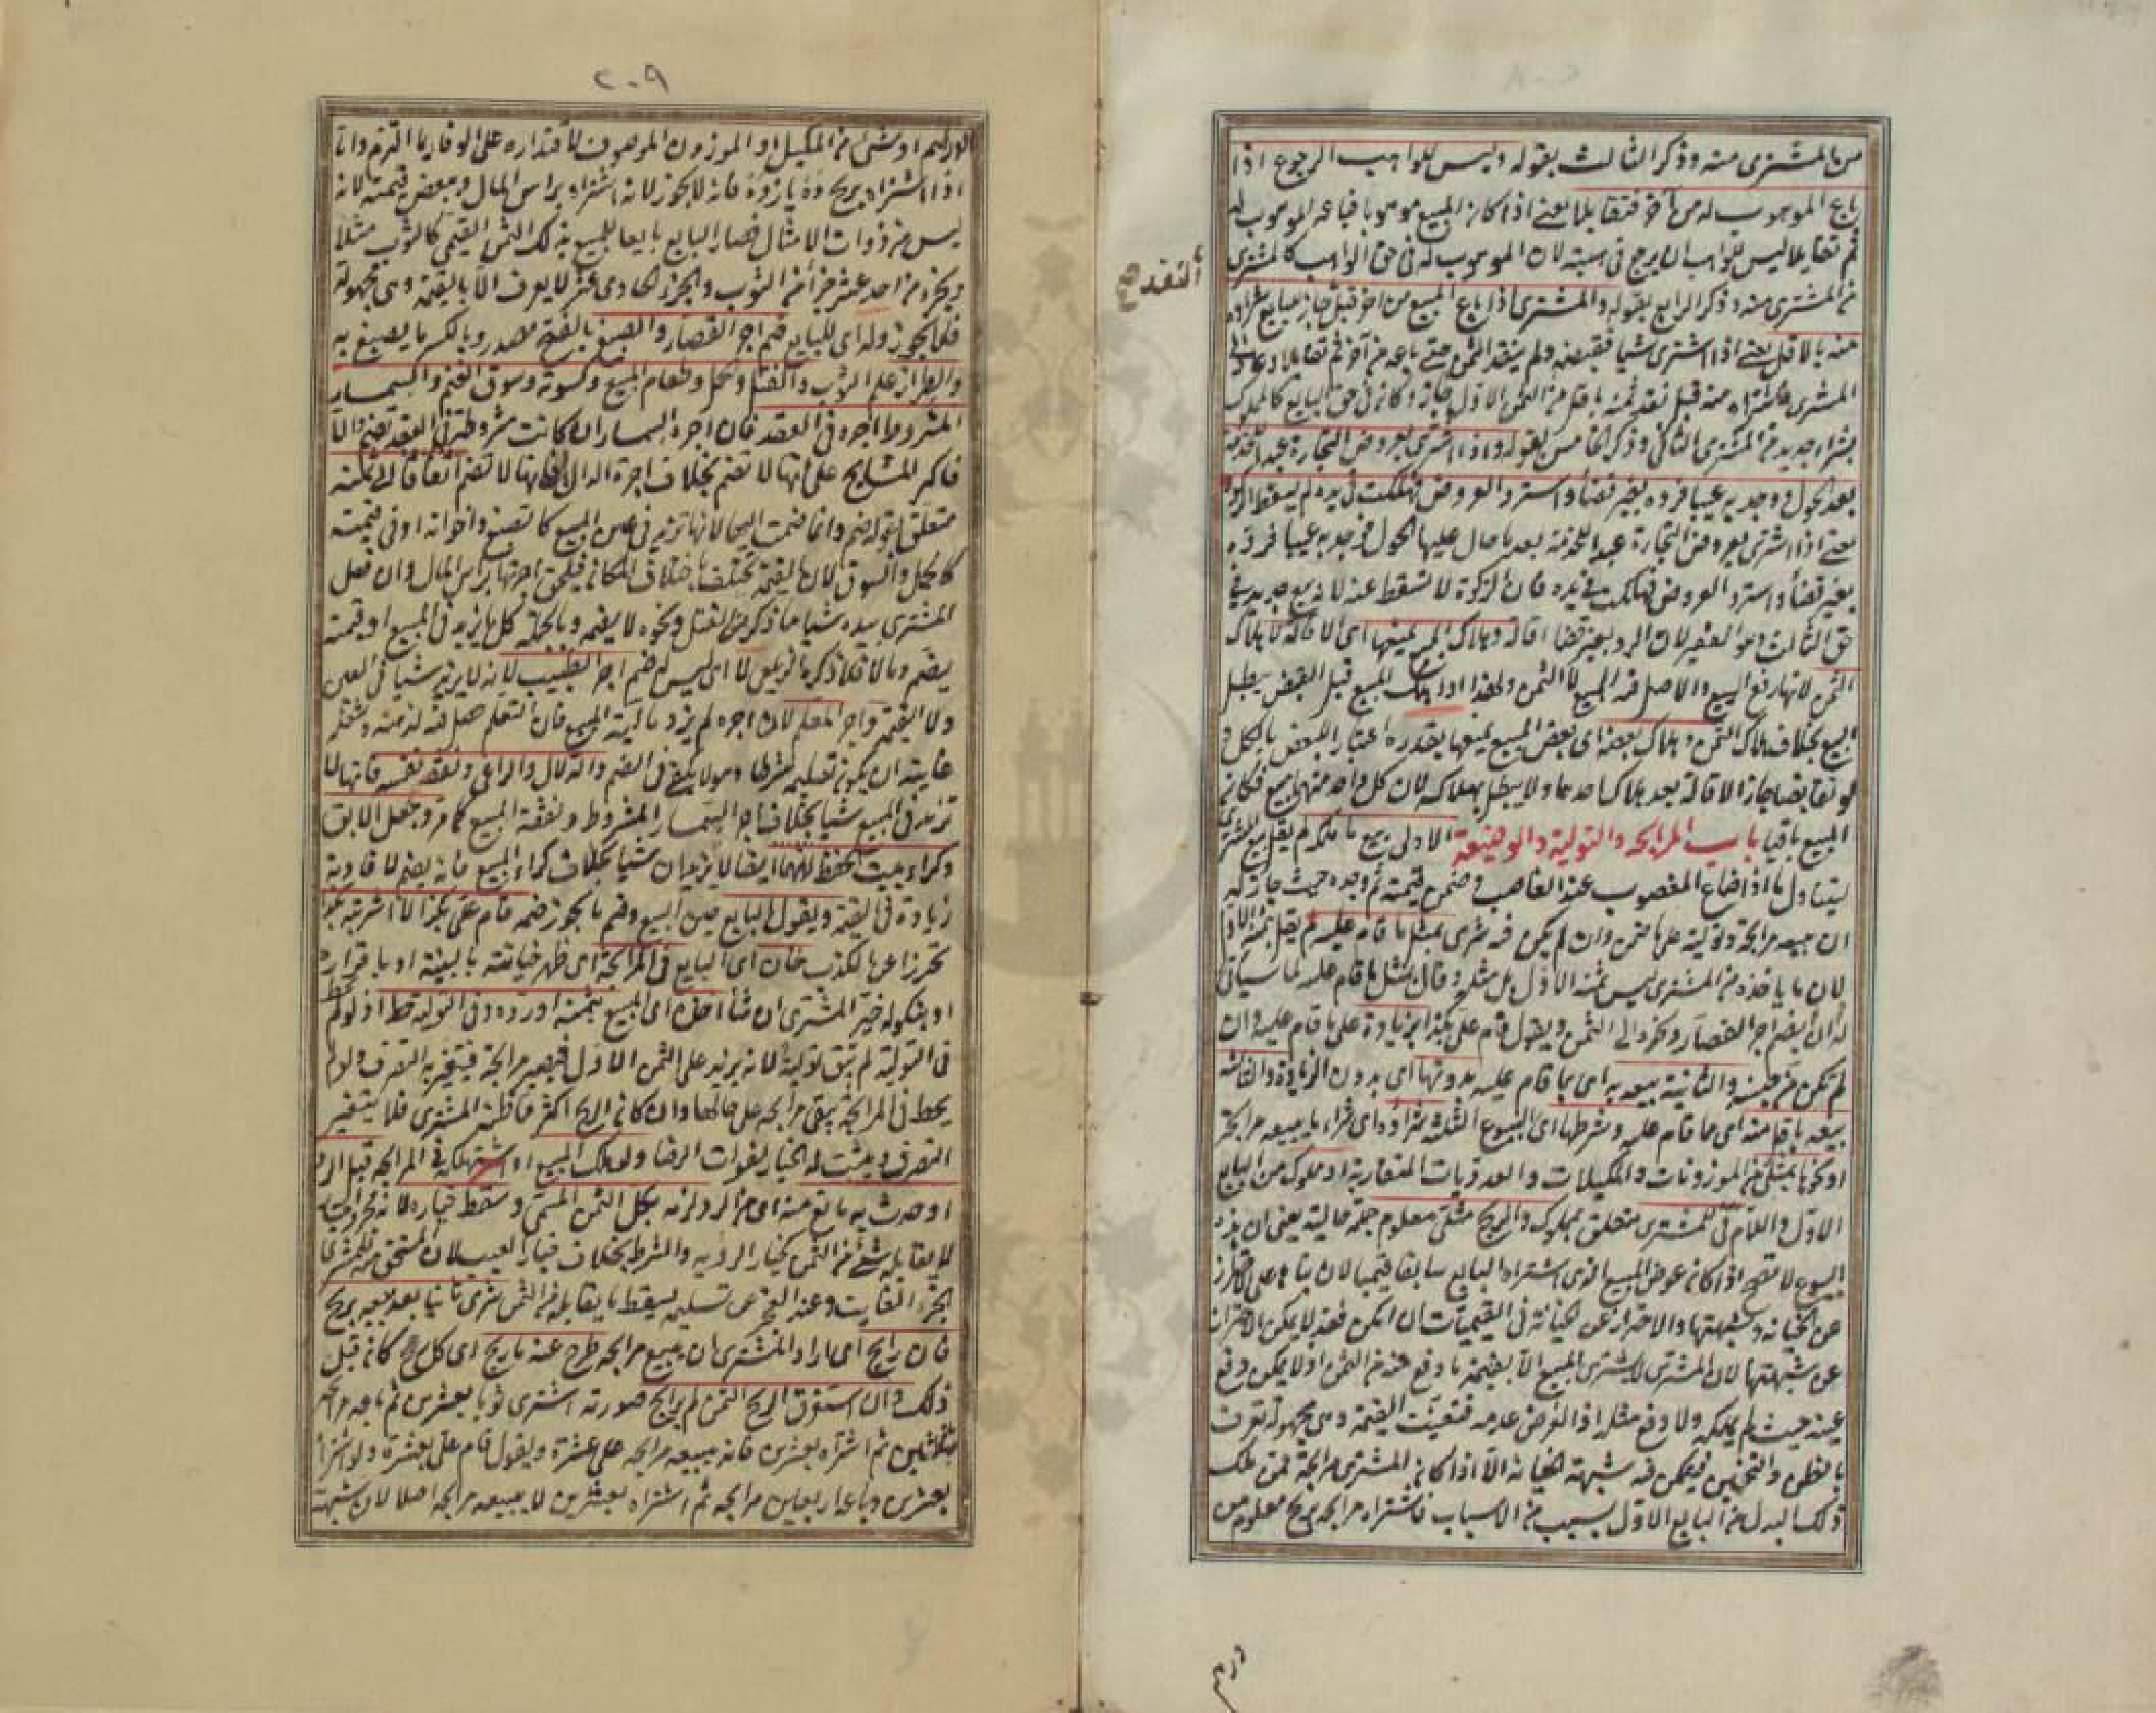 من المشترى منه وذكر الثالث بقوله وليس للواهب الرجوع اذا
باع الموهوب له من آخر فتقايلا يعنى اذا كان المبيع موهوبا فباعه الموهوب له
ثم تقايلا ليس للواهب ان يرجع فى هبته لان الموهوب له فى حق الواهب كالمشترى
من المشترى منه وذكر الرابع بقوله والمشترى اذا باع المبيع من آخر قبل
منه بالاقل يعنى اذا اشترى شيئا فقبضه ولم ينقد الثمن حتى باعه من آخر ثم تقايلا وعاد الى
المشترى فاشتراه منه قبل نقد ثمنه باقل من الثمن الاول جاز وكان فى حق البايع كالمملوك
بشراء جديد من المشترى الثانى وذكر الخامس بقوله واذا اشترى بعروض التجارة عبدا للخدمة
بعد الحول ووجد به عيبا فرده بغير قضاء واسترد العروض فهلكت فى يده لم يسقط الزكوة
يعنى اذا اشترى بعروض التجارة عبدا للخدمة بعد ما حال عليها الحول فوجد به عيبا فرده
بغير قضاء واسترد العروض فهلكت فى يده فان الزكوة لا تسقط عنه لانه بيع جديد فى
حق الثالث وهو الفقير لان الرد بغير قضاء اقالة وهلاك المبيع يمنعها اى الاقالة لا هلاك
الثمن لانها رفع البيع والاصل فيه المبيع لا الثمن ولهذا اذا هلك المبيع قبل القبض يبطل
البيع بخلاف هلاك الثمن وهلاك بعضه اى بعض المبيع يمنعها بقدره اعتبارا للبعض بالكل و
لو تقايضا جاز الاقالة بعد هلاك احدهما ولا يبطل بهلاكه لان كل واحد منهما مبيع فكان
المبيع باقيا باب المرابحة والتولية والوضيعة الاولى بيع ما ملكه لم يقل بيع المشترى
ليتناول ما اذا ضاع المغصوب عند الغاصب وضمن قيمته ثم وجده حيث جاز له
ان يبيعه مرابحة وتولية على ما ضمن وان لم يكن فيه شرى بمثل ما قام عليه لم يقل بثمنه الاول
لان ما ياخذه من المشترى ليس ثمنه الاول بل مثله وقال بمثل ما قام عليه لما سيأتى
له ان يضم اجر القصار ونحوه الى الثمن ويقول قام على بكذا بزيادة على ما قام عليه وان
لم تكن من جنسه والثانية بيعه به اى بما قام عليه بدونها اى بدون الزيادة والثالثة
بيعه باقل منه اى مما قام عليه وشرطها اى البيوع الثلثة شراؤه اى شراء ما يبيعه مرابحة
او نحوها بمثلى من الموزونات والمكيلات والعدديات المتقاربة او مملوك من البايع
الاول واللام فى للمشترى متعلق بمملوك والربح مثلى معلوم جملة حالية يعنى ان هذه
البيوع لا تصح اذا كان عوض المبيع الذى اشتراه البايع سابقا قيميا لان بناءها على الاحتراز
عن الخيانة وشبهتها والاحتراز عن الخيانة فى القيميات ان امكن فقد لا يمكن الاحتراز
عن شبهتها لان المشترى لا يشترى المبيع الا بقيمة ما وقع فيه من الثمن اذ لا يمكن دفع
عينه حيث لم يملكه ولا دفع مثله اذ الفرض عدمه فتعينت القيمة وهى مجهولة تعرف
بالظن والتخمين فيتمكن فيه شبهة الخيانة الا اذا كان المشترى مرابحة ممن ملك
ذلك البدل من البايع الاول بسبب من الاسباب فاشتراه مرابحة بربح معلوم من
الدراهم او شئ من المكيل او الموزون الموصوف لاقتداره على الوفاء بما التزم واما
اذا اشتراه بربح ده يازده فانه لا يجوز لانه اشتراه براس المال وببعض قيمته لانه
ليس من ذوات الامثال فصار البايع بايعا للمبيع بذلك الثمن القيمى كالثوب مثلا
وبجزء من احد عشر جزأ من الثوب والجزء الحادى عشر لا يعرف الا بالقيمة وهى مجهولة
فلا يجوز وله اى للبايع ضم اجر القصار والصبغ بالفتح مصدر وبالكسر ما يصبغ به
والطراز علم الثوب والفتل والحمل وطعام المبيع وكسوته وسوق الغنم والسمسار
المشروط اجره فى العقد فان اجرة السمسار ان كانت مشروطة فى العقد تضم والا
فاكثر المشايخ على انها لا تضم بخلاف اجرة الدلال فانها لا تضم اتفاقا الى ثمنه
متعلق بقوله ضم وانما ضمت اليها لانها تزيد فى عين المبيع كالصبغ واخواته او فى قيمته
كالحمل والسوق لان القيمة تختلف باختلاف المكان فيلحق اجرتها براس المال وان فعل
المشترى بيده شيئا مما ذكر من الفتل ونحوه لا يضمه وبالجملة كل ما يزيد فى المبيع او قيمته
يضم وما لا فلا ذكره الزيلعى لا اى ليس له ضم اجر الطبيب لانه لا يزيد شيئا فى العين
ولا القيمة واجر المعلم لان اجره لم يزد مالية المبيع فان التعلم حصل فيه لذهنه وشغله
غايته ان يكون تعليمه شرطا وهو لا يكفى فى الضم والدلال والراعى ونفقة نفسه فانها لا
تزيد فى المبيع شيئا بخلاف اجر السمسار المشروط ونفقة المبيع كما مر وجعل الآبق
وكراء بيت الحفظ لانهما ايضا لا يزيدان شيئا بخلاف كراء المبيع فانه يضم لافادته
زيادة فى القيمة ويقول البايع حين البيع وضم ما يجوز ضمه قام على بكذا لا اشتريته بكذا
تحرزا عن الكذب خان اى البايع فى المرابحة اى ظهر خيانته بالبينة او باقراره
او بنكوله خير المشترى ان شاء اخذه اى المبيع بثمنه او رده وفى التولية حط اذ لو لم يحط
فى التولية لم تبق تولية لانه يزيد على الثمن الاول فيصير مرابحة فيتغير به التصرف ولو لم
يحط فى المرابحة يبقى مرابحة على حالها وان كان الربح اكثر مما ظنه المشترى فلا يتغير
التصرف ويثبت له الخيار لفوات الرضا ولو هلك المبيع او استهلكه فى المرابحة قبل الرد
او حدث به ما تمنع منه اى من الرد لزمه بكل الثمن المسمى وسقط خياره لانه مجرد خيار
لا يقابله شئ من الثمن كخيار الرؤية والشرط بخلاف خيار العيب لان المستحق فيه للمشترى
الجزء الفايت وعند العجز عن تسليمه يسقط ما يقابله من الثمن شرى ثانيا بعد بيعه بربح
فان رابح اى اراد المشترى ان يبيع مرابحة طرح عنه ما ربح اى كل ربح كان قبل
ذلك وان استغرق الربح الثمن لم يرابح صورته اشترى ثوبا بعشرين ثم باعه مرابحة
بثلثين ثم اشتراه بعشرين فانه يبيعه مرابحة على عشرة ويقول قام على بعشرة ولو اشتراه
بعشرين وباعه اربعين مرابحة ثم اشتراه بعشرين لا يبيعه مرابحة اصلا لان شبهة
٢٠٩